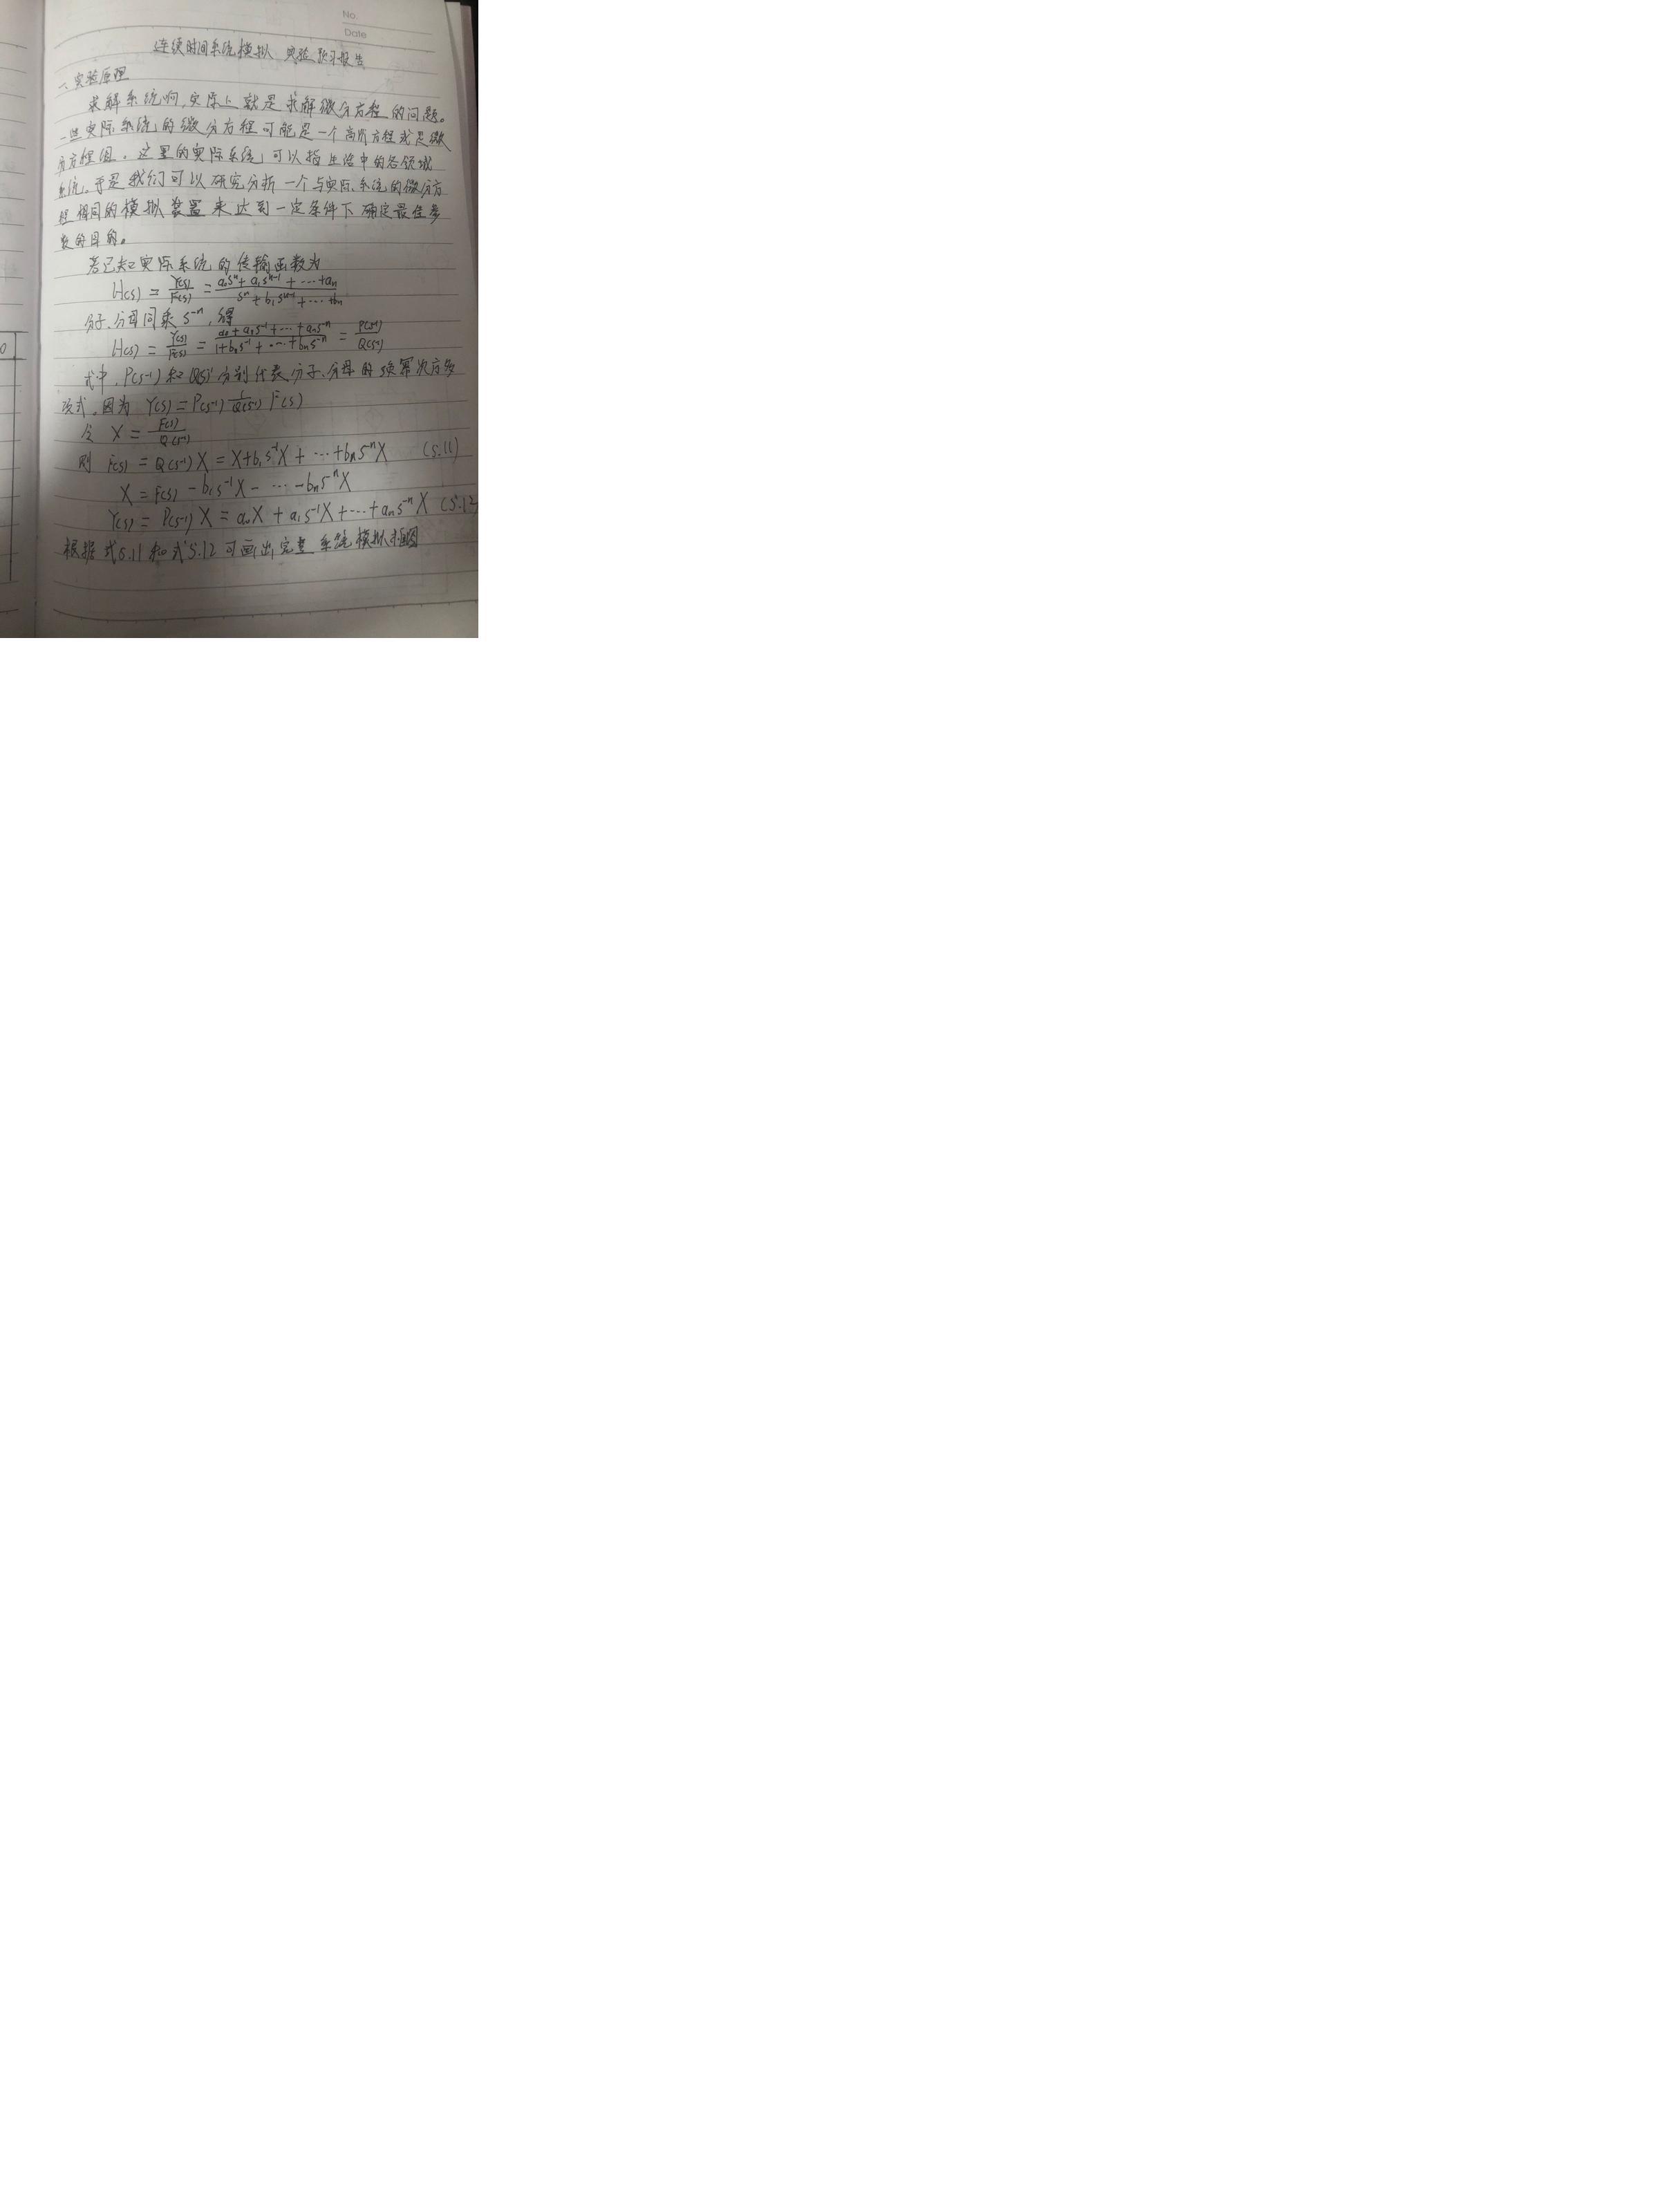 No.
Date
连续时间系统模拟 实验预习报告
一、实验原理
求解系统响,实际上就是求解微分方程的问题。
一些实际系统的微分方程可能是一个高阶方程或是微
分方程组。这里的实际系统可以指生活中的各领域
系统。于是我们可以研究分析一个与实际系统的微分方
程相同的模拟装置来达到一定条件下确定最佳参
数的目的。
若已知实际系统的传输函数为
H(s) = Y(s)/F(s) = (a₀sⁿ + a₁sⁿ⁻¹ + ⋯ + aₙ)/(sⁿ + b₁sⁿ⁻¹ + ⋯ + bₙ)
分子、分母同乘 s⁻ⁿ,得
H(s) = Y(s)/F(s) = (a₀ + a₁s⁻¹ + ⋯ + aₙs⁻ⁿ)/(1 + b₁s⁻¹ + ⋯ + bₙs⁻ⁿ) = P(s⁻¹)/Q(s⁻¹)
式中,P(s⁻¹)和Q(s)⁻¹分别代表分子、分母的 幂次方多
项式。因为 Y(s) = P(s⁻¹) 1/Q(s⁻¹) F(s)
令 X = F(s)/Q(s⁻¹)
则 F(s) = Q(s⁻¹)X = X + b₁s⁻¹X + ⋯ + bₙs⁻ⁿX (5.11)
X = F(s) − b₁s⁻¹X − ⋯ − bₙs⁻ⁿX
Y(s) = P(s⁻¹)X = a₀X + a₁s⁻¹X + ⋯ + aₙs⁻ⁿX (5.12
根据式5.11和式5.12可画出完整系统模拟框图
0